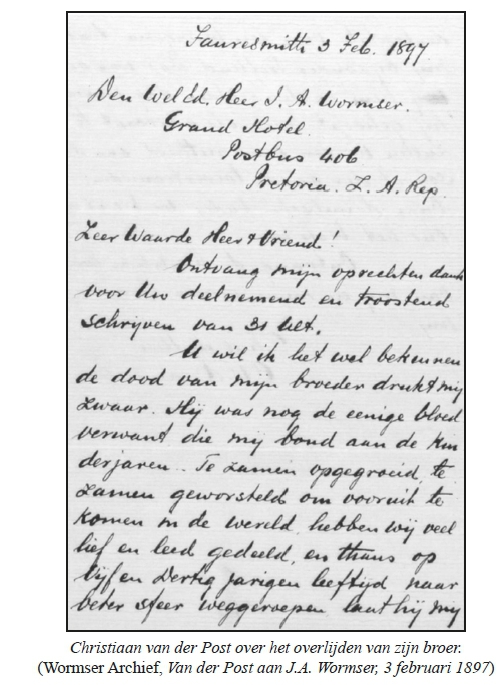 Fauresmith 3 Feb. 1897
Den Weled. Heer J. A. Wormser.
Grand Hotel.
Postbus 406
Pretoria. Z. A. Rep.
Zeer Waarde Heer & Vriend!
Ontvang mijn oprechten dank
voor Uw deelnemend en troostend
schrijven van 31 Ult.
U wil ik het wel bekennen
de dood van mijn broeder drukt mij
zwaar. Hij was nog de eenige bloed
verwant die mij bond aan de kin
derjaren. Te zamen opgegroeid, te
zamen geworsteld om vooruit te
komen in de wereld, hebben wij veel
lief en leed gedeeld, en thans op
Vijf en Dertig jarigen leeftijd naar
beter sfeer weggeroepen laat hij mij
Christiaan van der Post over het overlijden van zijn broer.
(Wormser Archief, Van der Post aan J.A. Wormser, 3 februari 1897)